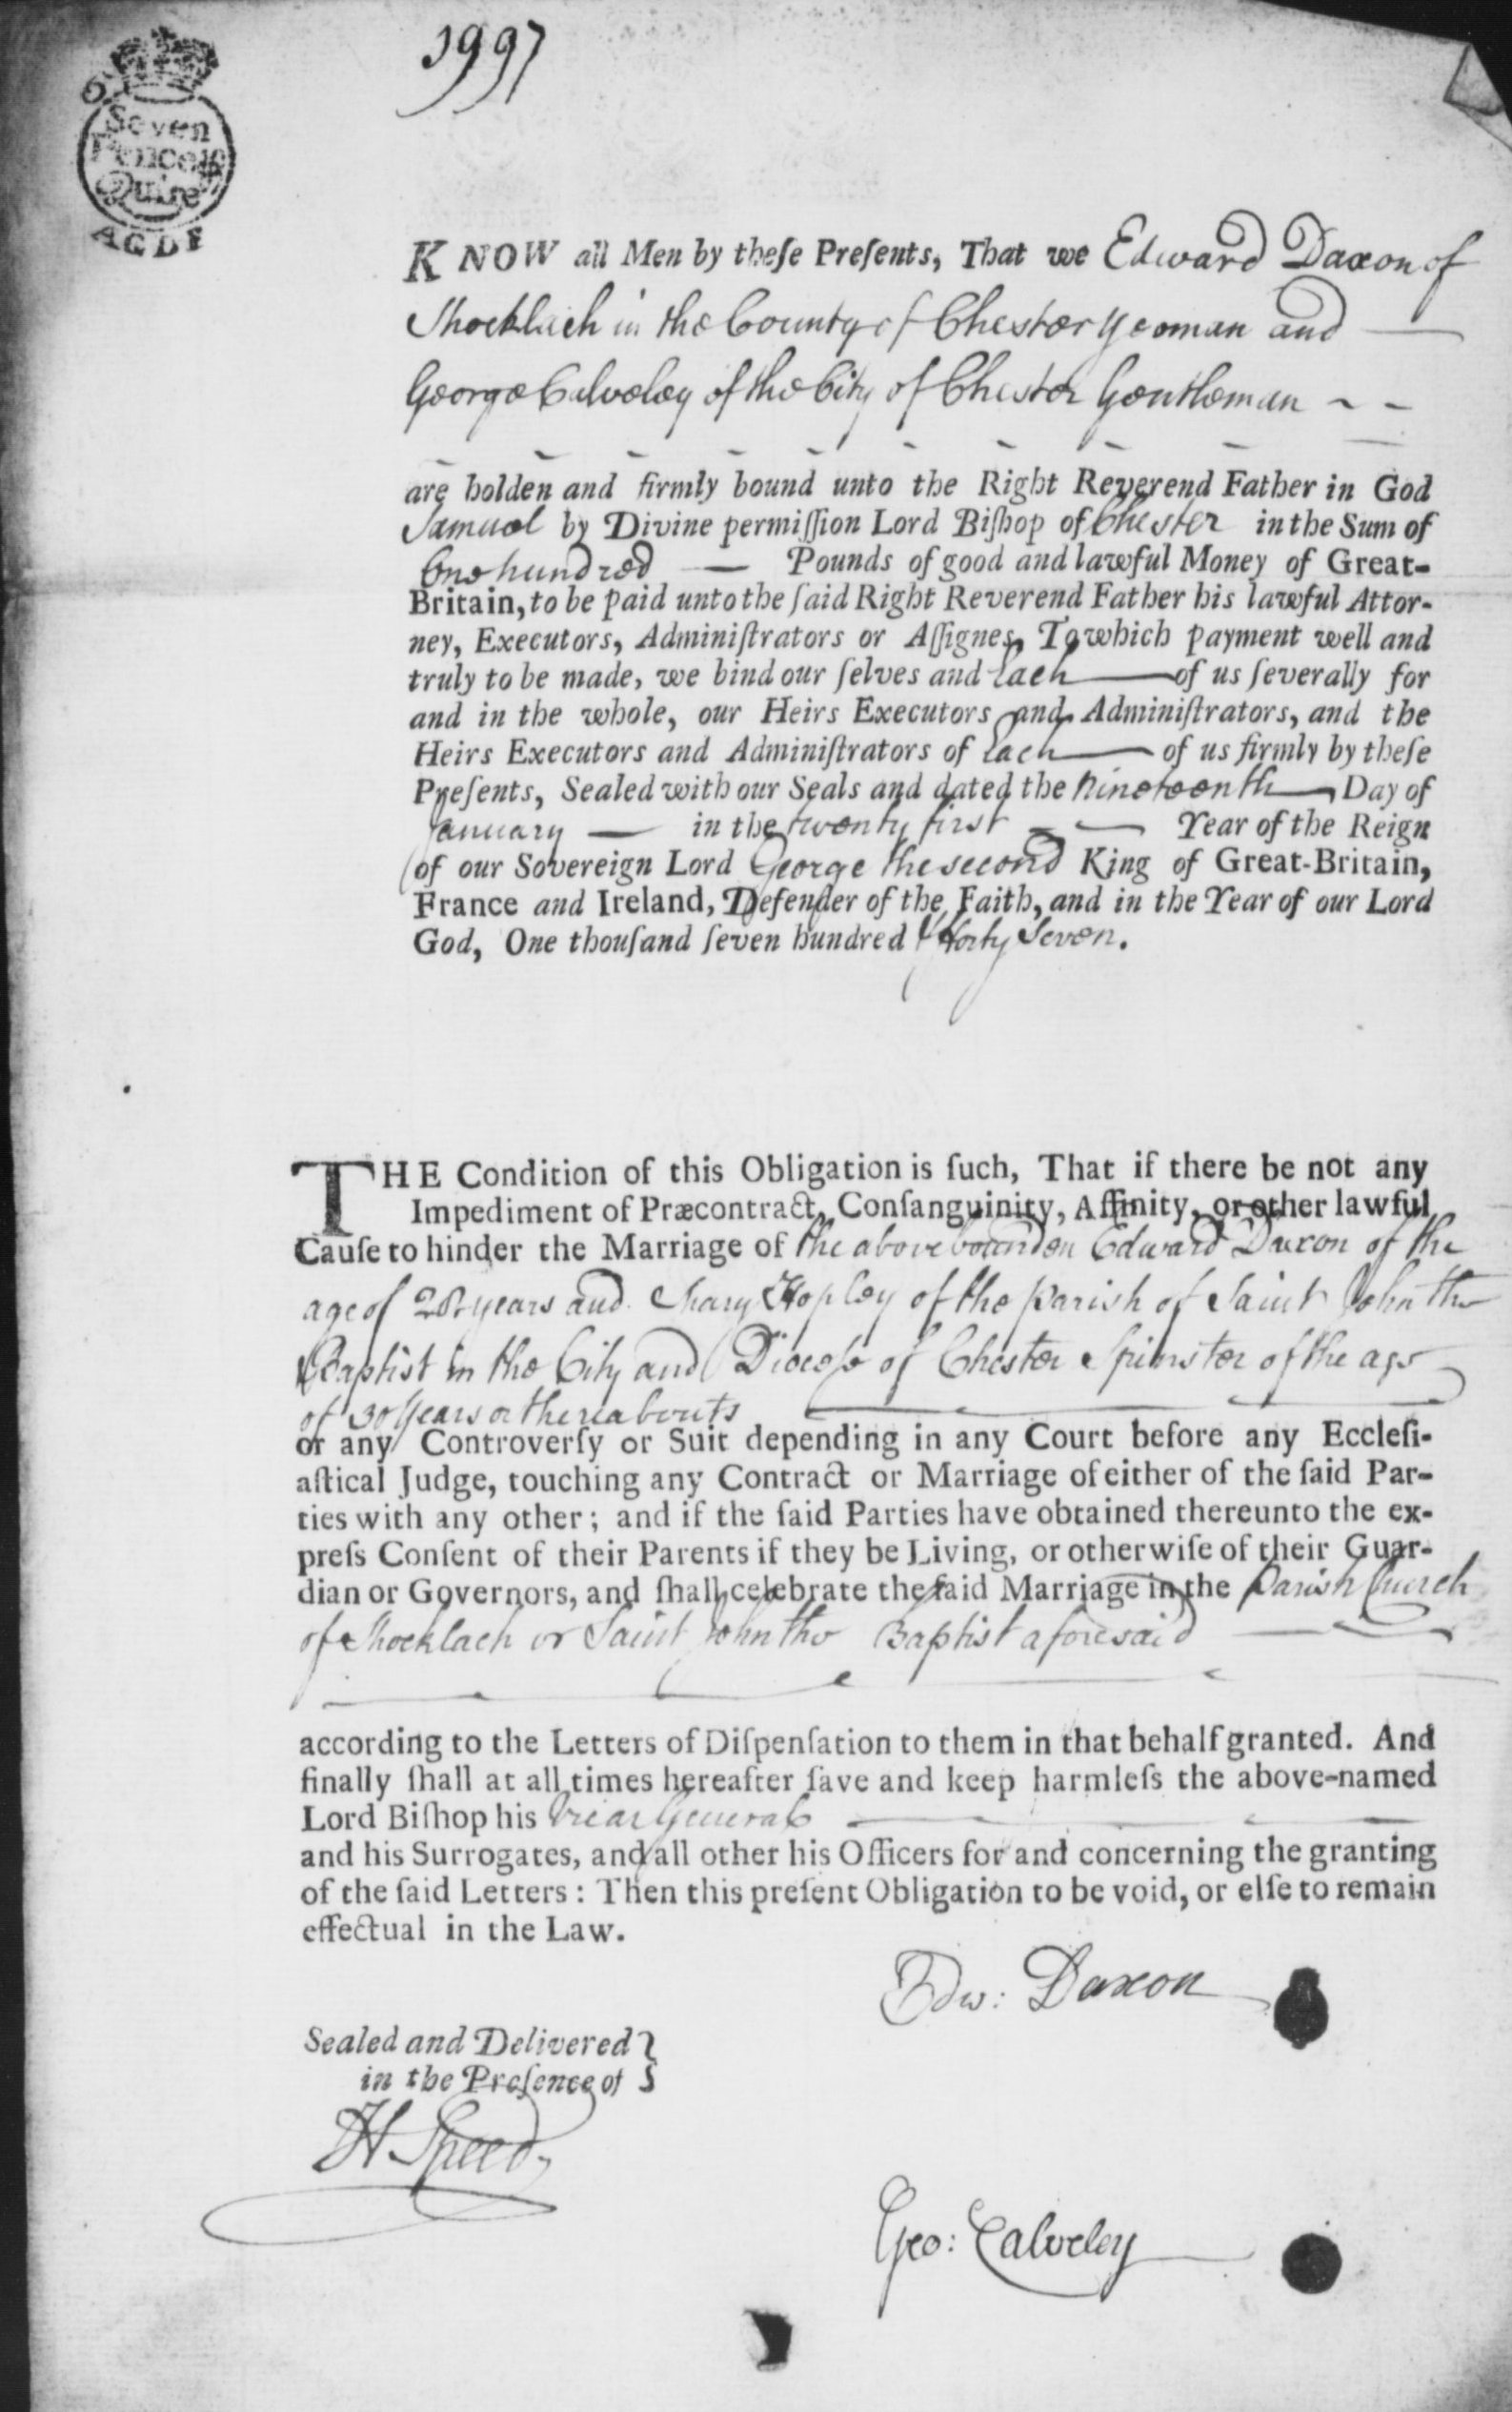 1997
Seven
Pence ℔
Quire
AGDF
KNOW all Men by theſe Preſents, That we Edward Daxon of
Shocklach in the County of Chester Yeoman and
George Calveley of the City of Chester Gentleman
are holden and firmly bound unto the Right Reverend Father in God
Samuel by Divine permiſſion Lord Biſhop of Chester in the Sum of
One hundred — Pounds of good and lawful Money of Great-
Britain, to be paid unto the ſaid Right Reverend Father his lawful Attor-
ney, Executors, Adminiſtrators or Aſſignes, To which payment well and
truly to be made, we bind our ſelves and Each — of us ſeverally for
and in the whole, our Heirs Executors and Adminiſtrators, and the
Heirs Executors and Adminiſtrators of Each — of us firmly by theſe
Preſents, Sealed with our Seals and dated the Nineteenth — Day of
January — in the twenty first — Year of the Reign
of our Sovereign Lord George the second King of Great-Britain,
France and Ireland, Defender of the Faith, and in the Year of our Lord
God, One thouſand ſeven hundred & fforty Seven.
THE Condition of this Obligation is ſuch, That if there be not any
Impediment of Præcontract, Conſanguinity, Affinity, or other lawful
Cauſe to hinder the Marriage of the above bounden Edward Daxon of the
age of 28 years and Mary Hopley of the parish of Saint John the
Baptist in the City and Diocese of Chester Spinster of the age
of 30 Years or thereabouts
or any Controverſy or Suit depending in any Court before any Eccleſi-
aſtical Judge, touching any Contract or Marriage of either of the ſaid Par-
ties with any other; and if the ſaid Parties have obtained thereunto the ex-
preſs Conſent of their Parents if they be Living, or otherwiſe of their Guar-
dian or Governors, and ſhall celebrate the ſaid Marriage in the Parish Church
of Shocklach or Saint John the Baptist aforesaid
according to the Letters of Diſpenſation to them in that behalf granted. And
finally ſhall at all times hereafter ſave and keep harmleſs the above-named
Lord Biſhop his Vicar General
and his Surrogates, and all other his Officers for and concerning the granting
of the ſaid Letters: Then this preſent Obligation to be void, or elſe to remain
effectual in the Law.
Edw: Daxon
Sealed and Delivered
in the Preſence of
H Speed
Geo: Calveley